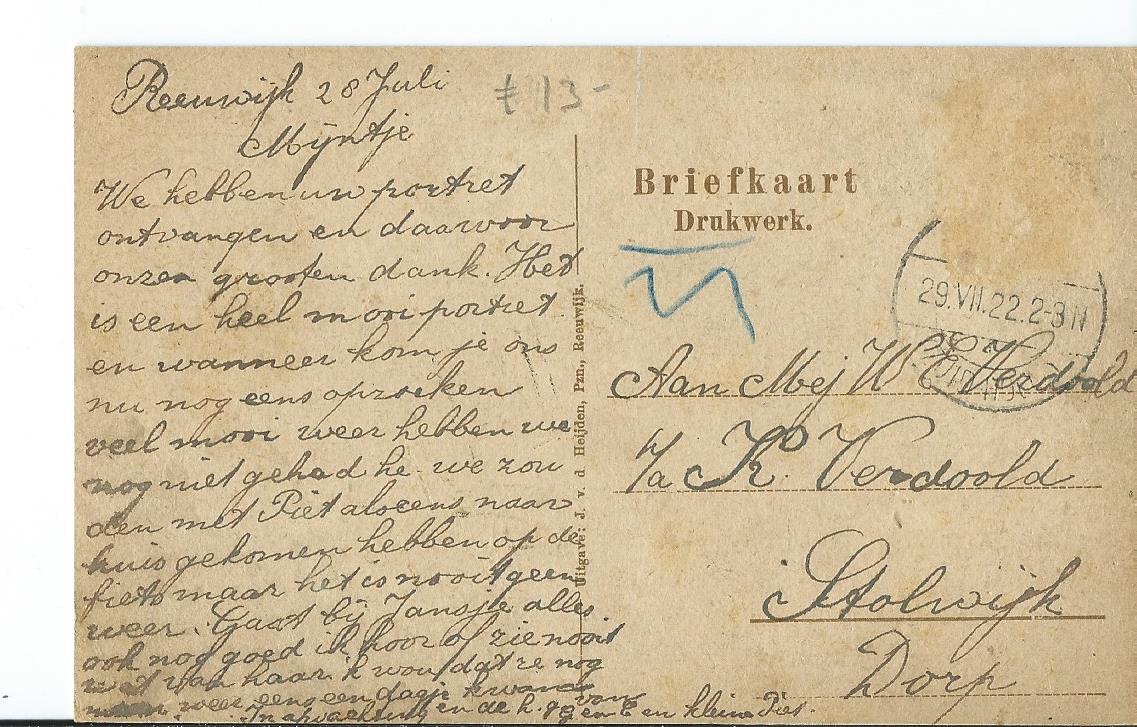 Reeuwijk 28 Juli
Mijntje
We hebben uw portret
ontvangen en daarvoor
onzen grooten dank. Het
is een heel mooi portret.
en wanneer kom je ons
nu nog eens opzoeken
veel mooi weer hebben we
nog niet gehad he. we zou
den met Piet al eens naar
huis gekomen hebben op de
fiets maar het is nooit geen
weer. Gaat bij Jansje alles
ook nog goed ik hoor of zie nooit
wat van haar ik wou dat ze nog
weer eens een dagje kwam
In afwachting en de h. g. en kleine Pies.
£ 13-
Uitgave: J. v. d Heijden, Pzn., Reeuwijk.
Briefkaart
Drukwerk.
29.VII.22.2-3N
Aan Mej W Verdoold
p/a K. Verdoold
Stolwijk
Dorp